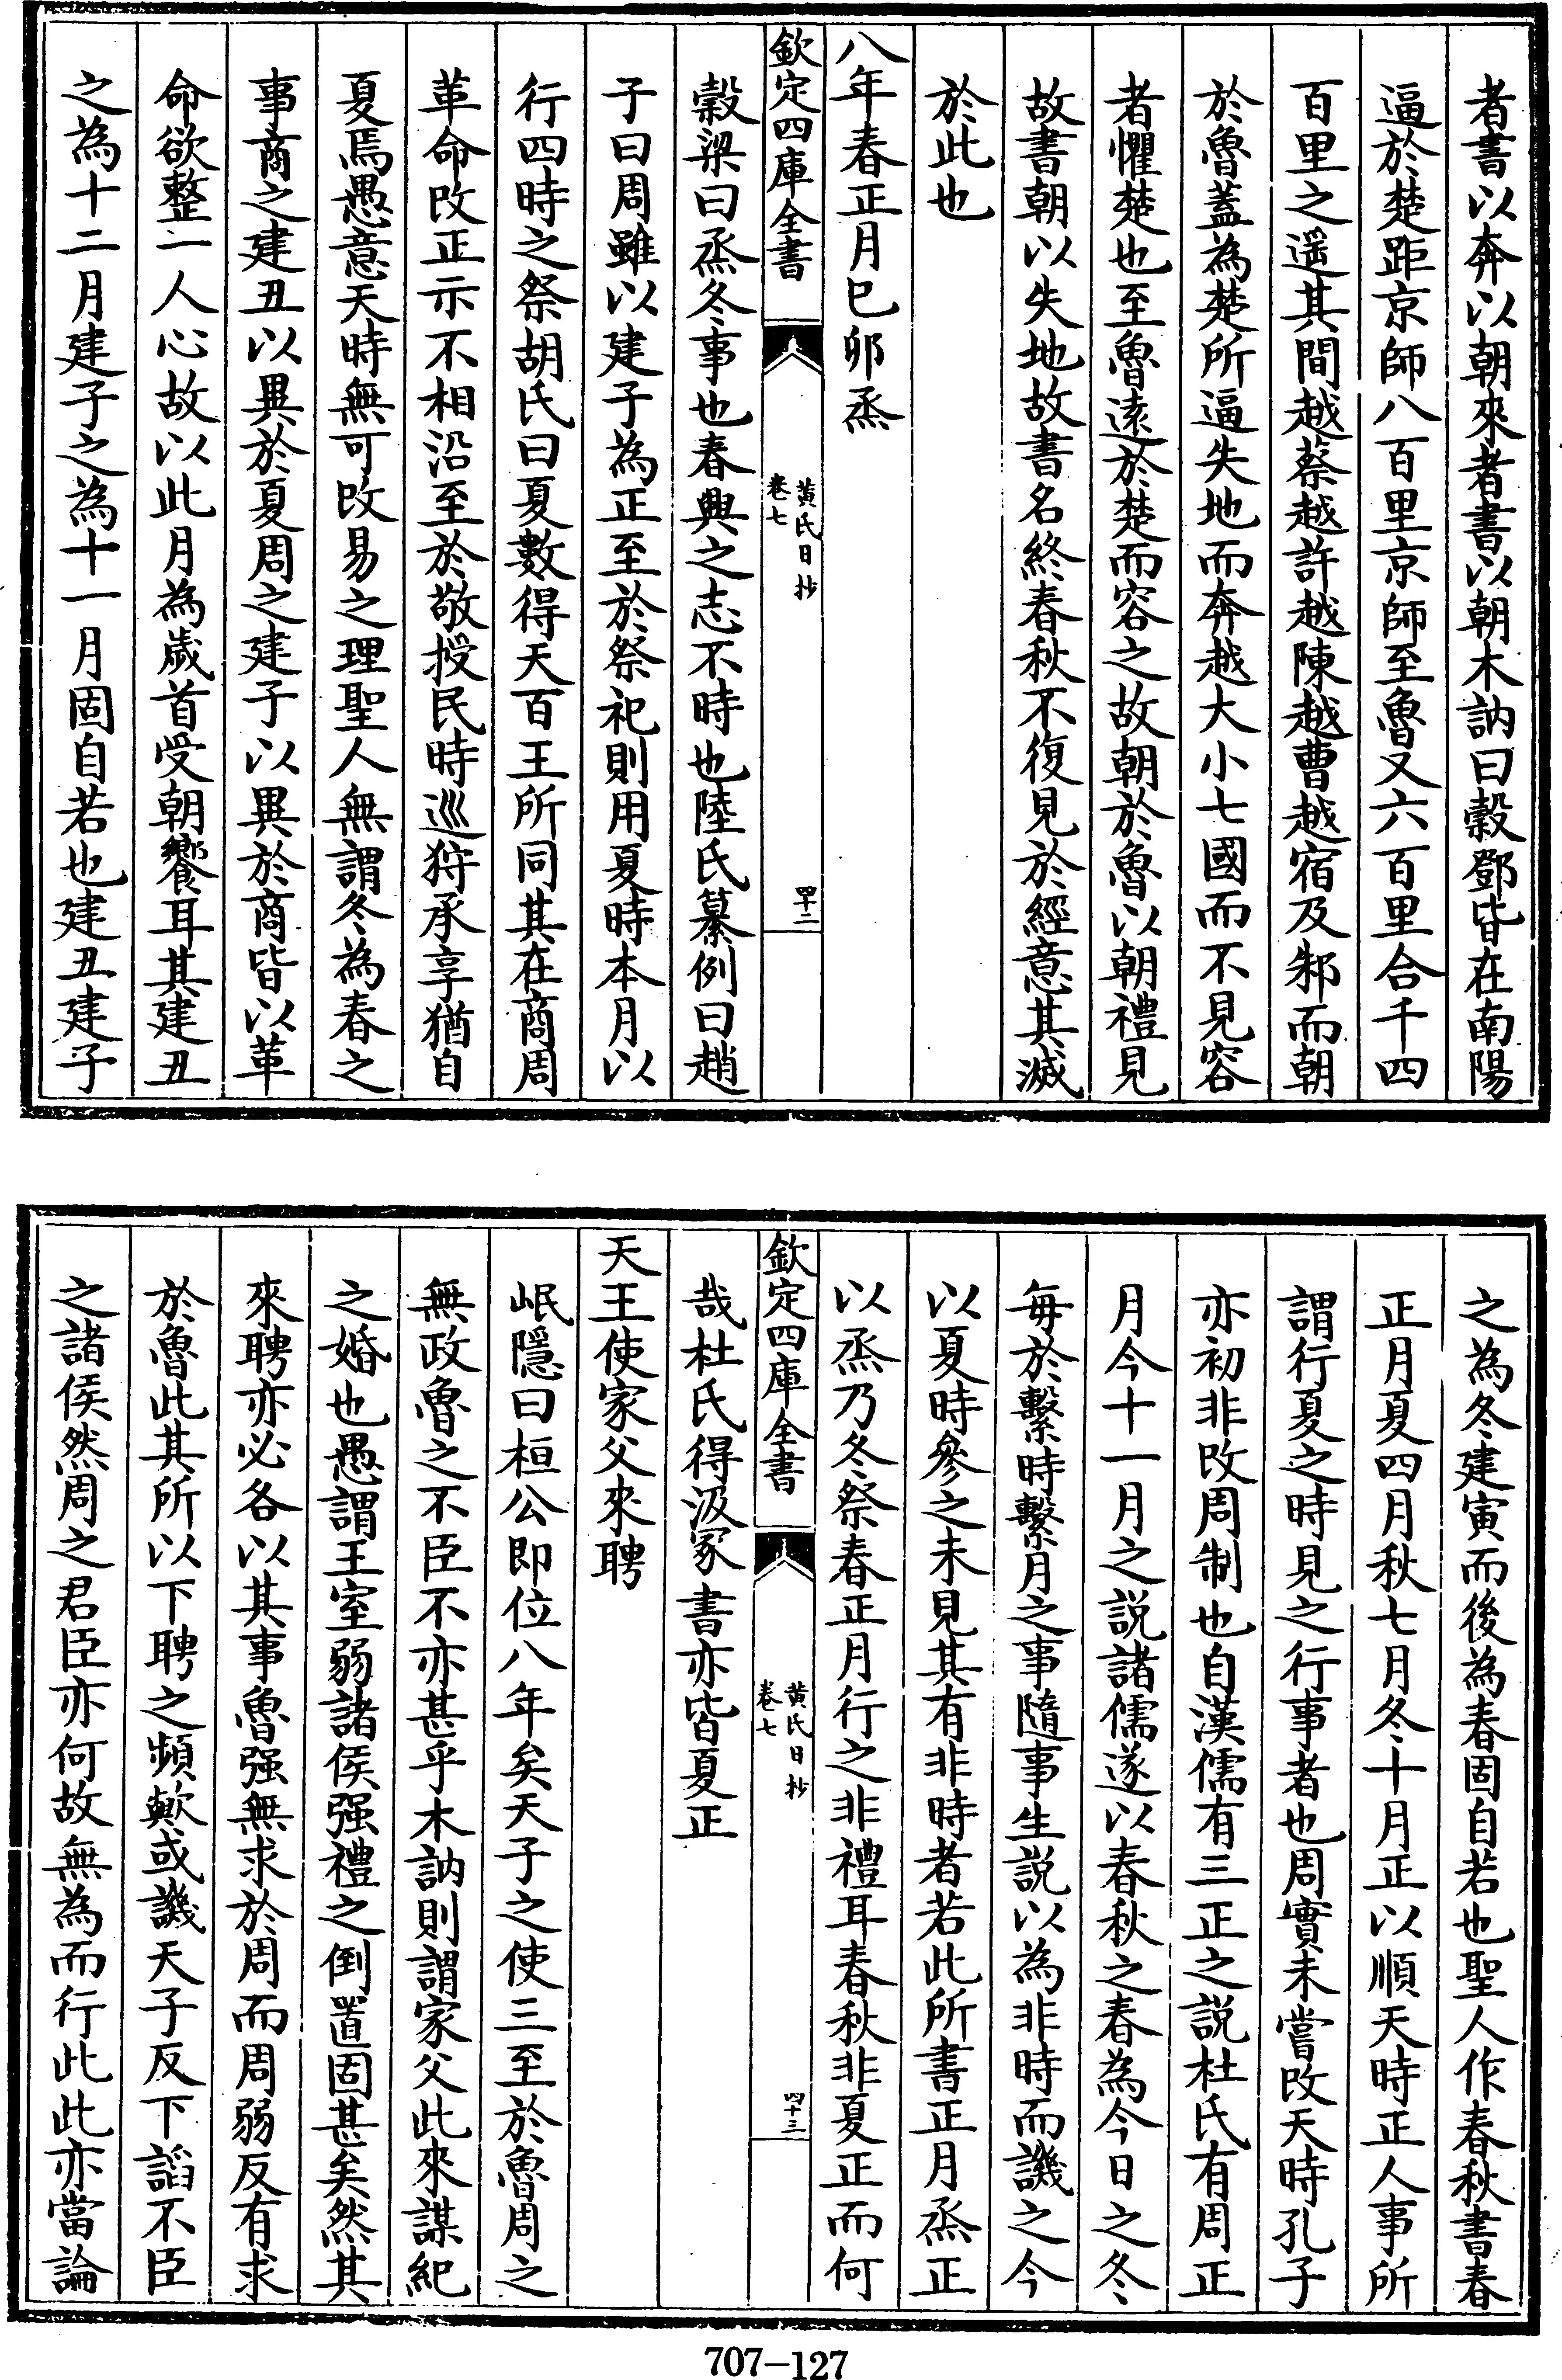 者書以奔以朝來者書以朝木訥曰穀鄧皆在南陽
逼於楚距京師八百里京師至魯又六百里合千四
百里之遥其間越蔡越許越陳越曹越宿及邾而朝
於魯蓋為楚所逼失地而奔越大小七國而不見容
者懼楚也至魯逺於楚而容之故朝於魯以朝禮見
故書朝以失地故書名終春秋不復見於經意其滅
於此也
八年春正月巳卯烝
欽定四庫全書
黄氏日抄
卷七
四十二
穀梁曰烝冬事也春興之志不時也陸氏纂例曰趙
子曰周雖以建子為正至於祭祀則用夏時本月以
行四時之祭胡氏曰夏數得天百王所同其在商周
革命改正示不相沿至於敬授民時巡狩承享猶自
夏焉愚意天時無可改易之理聖人無謂冬為春之
事商之建丑以異於夏周之建子以異於商皆以革
命欲整一人心故以此月為歲首受朝饗耳其建丑
之為十二月建子之為十一月固自若也建丑建子
之為冬建寅而後為春固自若也聖人作春秋書春
正月夏四月秋七月冬十月正以順天時正人事所
謂行夏之時見之行事者也周實未嘗改天時孔子
亦初非改周制也自漢儒有三正之説杜氏有周正
月今十一月之説諸儒遂以春秋之春為今日之冬
毎於繫時繫月之事隨事生説以為非時而譏之今
以夏時參之未見其有非時者若此所書正月烝正
以烝乃冬祭春正月行之非禮耳春秋非夏正而何
欽定四庫全書
黄氏日抄
卷七
四十三
哉杜氏得汲冡書亦皆夏正
天王使家父來聘
岷隱曰桓公即位八年矣天子之使三至於魯周之
無政魯之不臣不亦甚乎木訥則謂家父此來謀紀
之婚也愚謂王室弱諸侯强禮之倒置固甚矣然其
來聘亦必各以其事魯强無求於周而周弱反有求
於魯此其所以下聘之頻歟或譏天子反下謟不臣
之諸侯然周之君臣亦何故無為而行此此亦當論
707-127